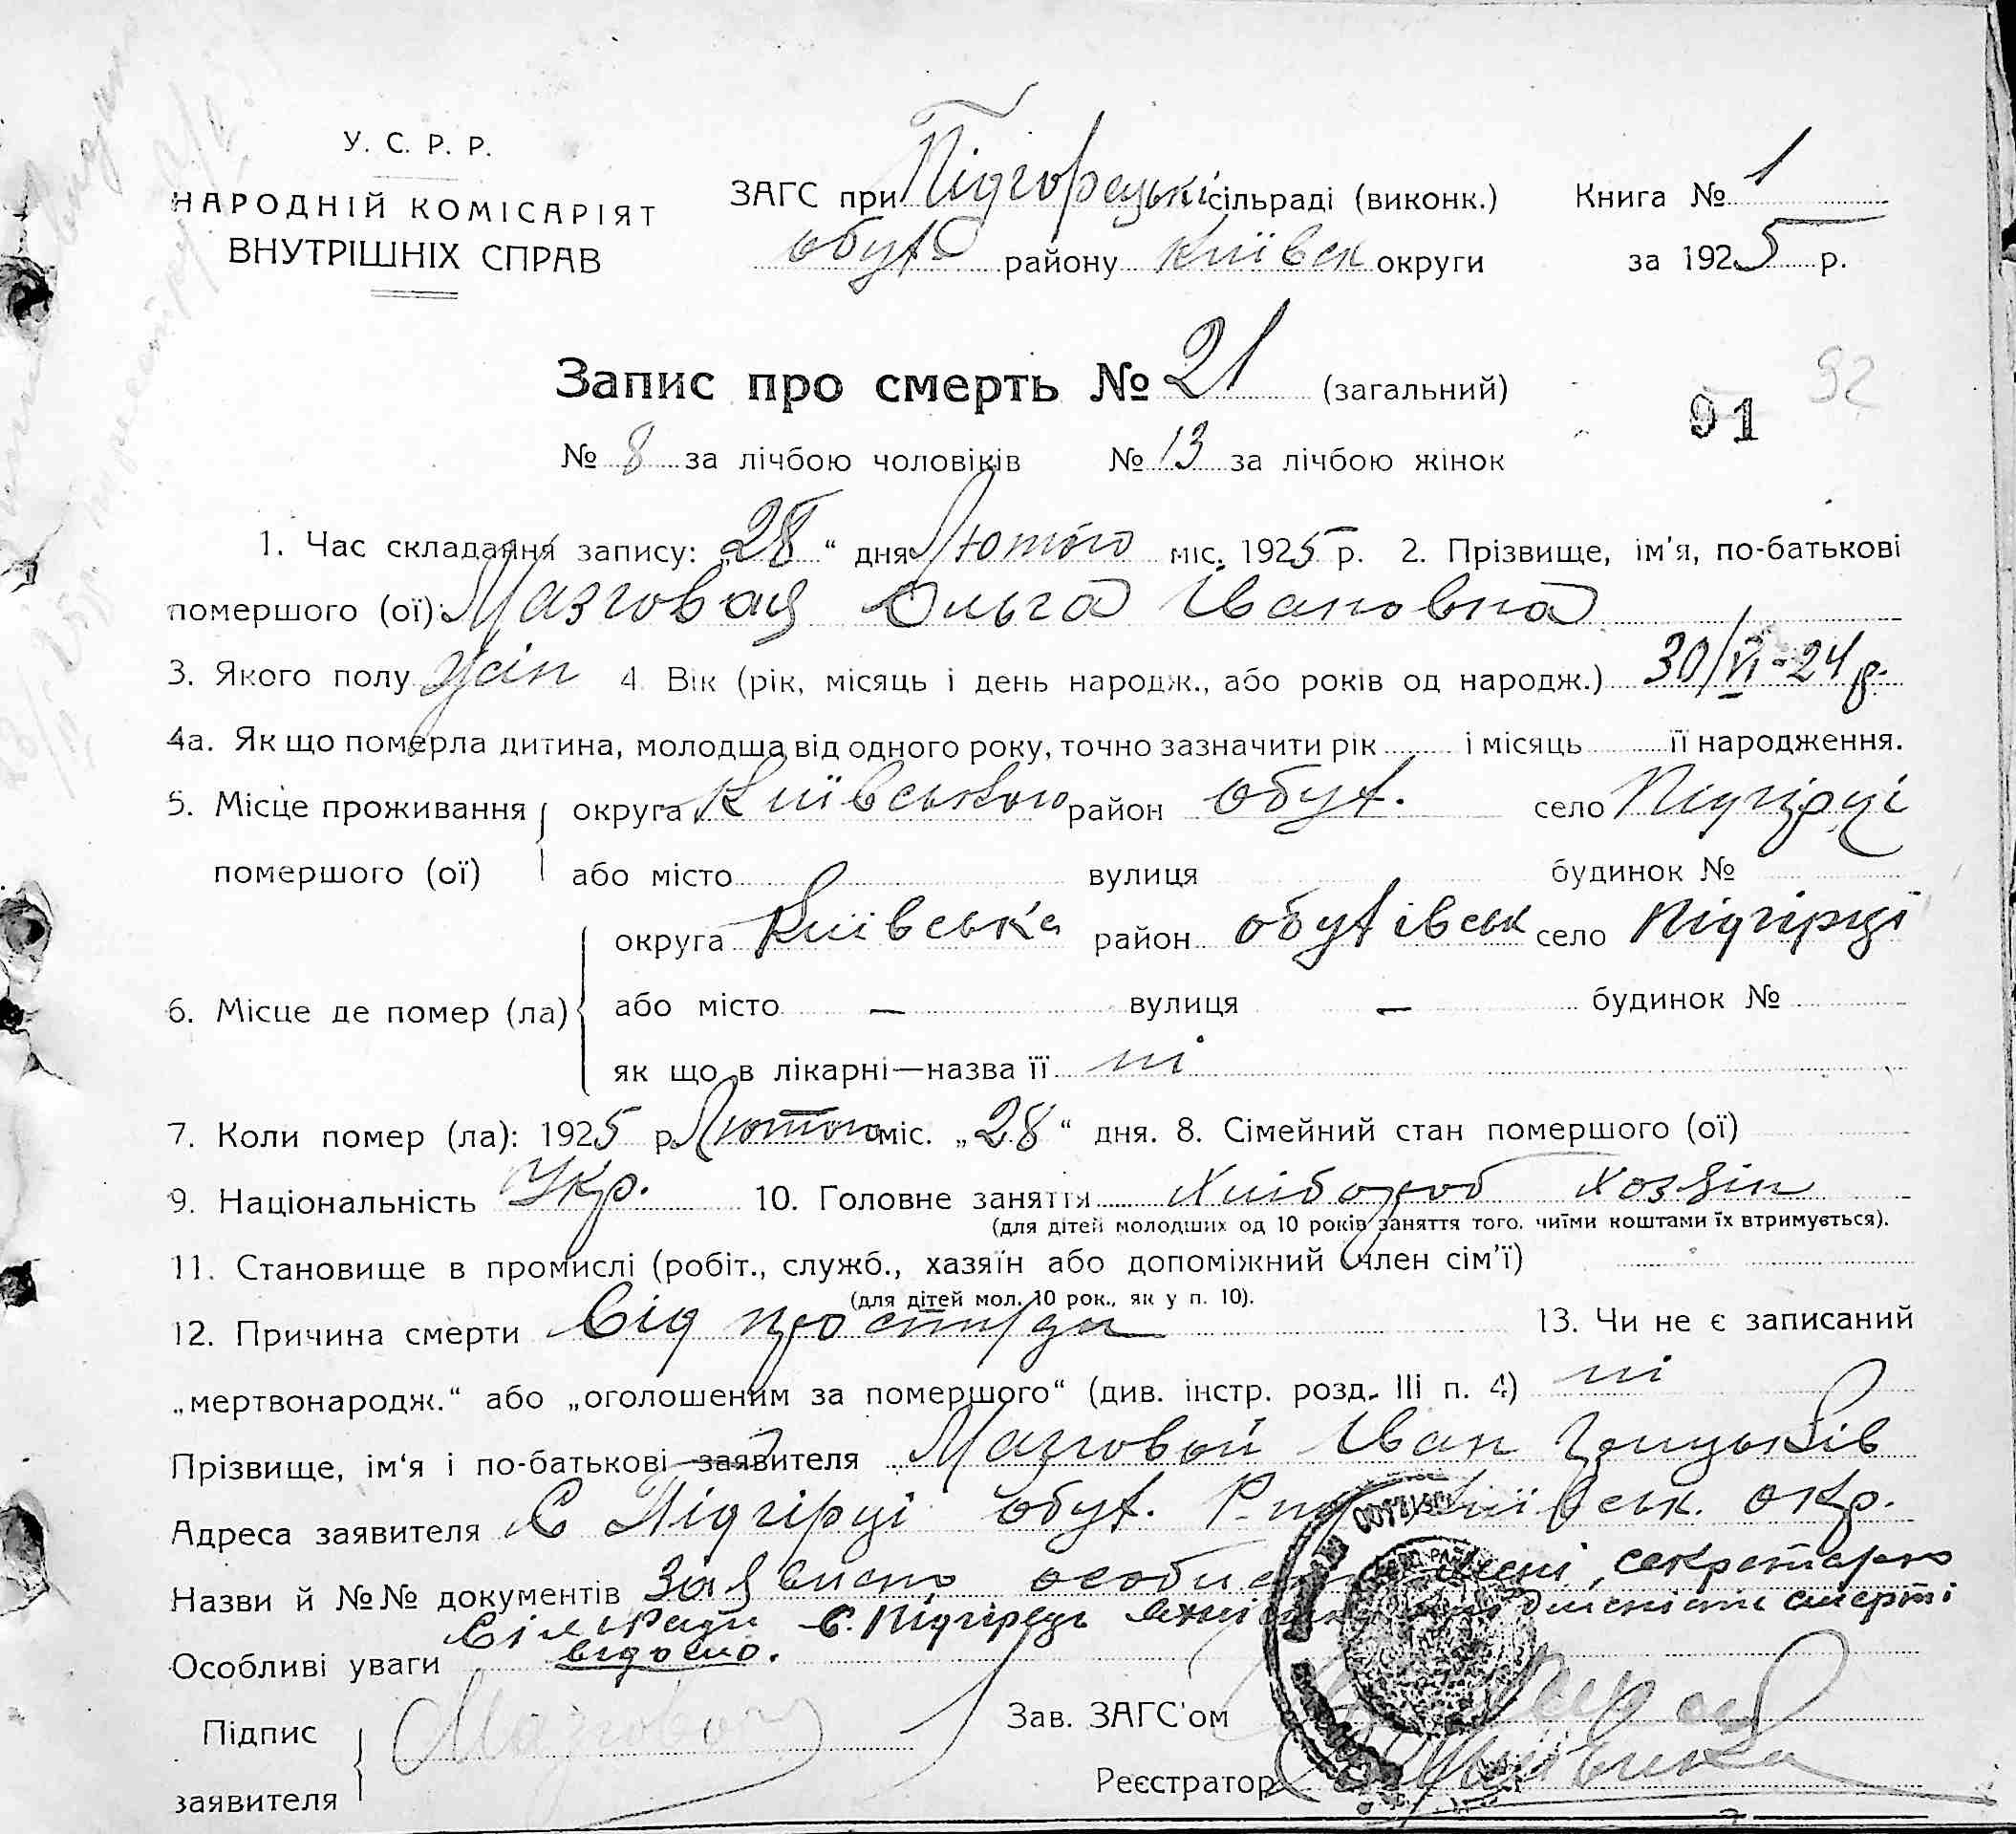 У. С. Р. Р.
НАРОДНІЙ КОМІСАРІЯТ
ВНУТРІШНІХ СПРАВ
ЗАГС при Підгорецькі сільраді (виконк.)
обух району Київськ округи
Книга № 1
за 1925 р.
Запис про смерть № 21 (загальний)
91
92
№ 8 за лічбою чоловіків № 13 за лічбою жінок
1. Час складання запису: „28“ дня Лютого міс. 1925 р. 2. Прізвище, ім'я, по-батькові
помершого (ої): Мазговая Ольга Івановна
3. Якого полу жін 4. Вік (рік, місяць і день народж., або років од народж.) 30/VI-24 р.
4а. Як що померла дитина, молодша від одного року, точно зазначити рік і місяць її народження.
5. Місце проживання округа Київського район обух. село Підгірці
помершого (ої) або місто вулиця будинок №
округа Київська район обухівськ село Підгірці
6. Місце де помер (ла) або місто — вулиця — будинок №
як що в лікарні—назва її ні
7. Коли помер (ла): 1925 р. Лютого міс. „28“ дня. 8. Сімейний стан помершого (ої)
9. Національність Укр. 10. Головне заняття Хлібороб Хозяін
(для дітей молодших од 10 років заняття того, чиїми коштами їх втримується).
11. Становище в промислі (робіт., служб., хазяїн або допоміжний член сім'ї)
(для дітей мол. 10 рок., як у п. 10).
12. Причина смерти Від простуди 13. Чи не є записаний
„мертвонародж.“ або „оголошеним за помершого“ (див. інстр. розд. III п. 4) ні
Прізвище, ім'я і по-батькові заявителя Мазговой Іван
Адреса заявителя С Підгірці обух. Р-ну Київськ. окр.
Назви й №№ документів Заявлено особисто мені, секретарю
Сіл Ради С. Підгірець дійсність смерті
відомо.
Особливі уваги
Підпис
заявителя Мазговой
Зав. ЗАГС'ом
Реєстратор